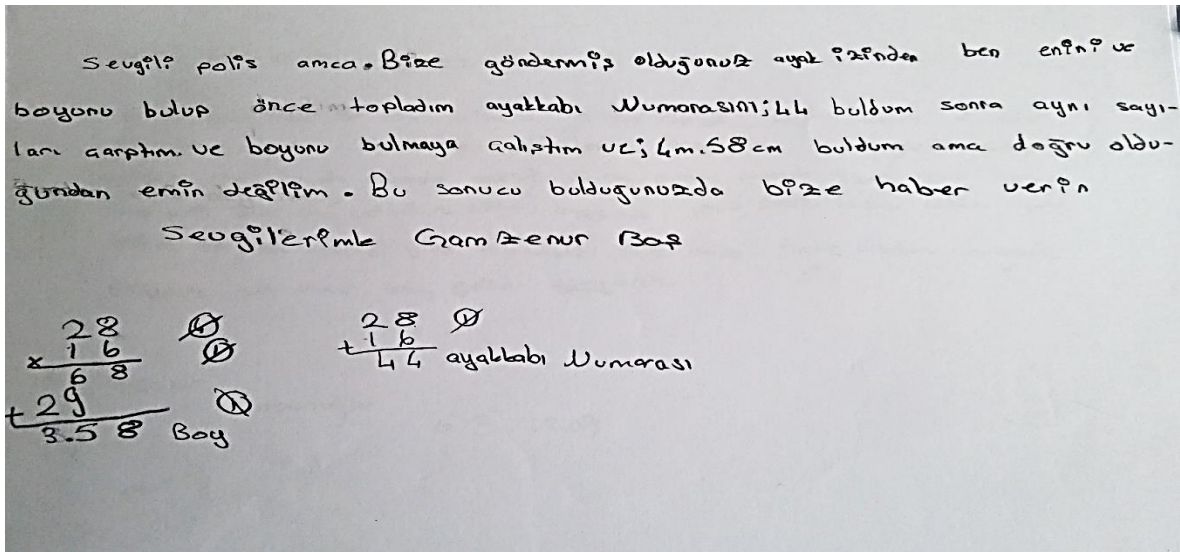 Sevgili polis amca. Bize göndermiş olduğunuz ayak izinden ben enini ve
boyunu bulup önce topladım ayakkabı Numarasını; 44 buldum sonra aynı sayı-
ları çarptım. ve boyunu bulmaya çalıştım ve; 4m.58cm buldum ama doğru oldu-
ğundan emin değilim. Bu sonucu bulduğunuzda bize haber verin
Sevgilerimle Gamzenur Baş
28
x 16
68
+ 29
3.58 Boy
28
+ 16
44 ayakkabı Numarası